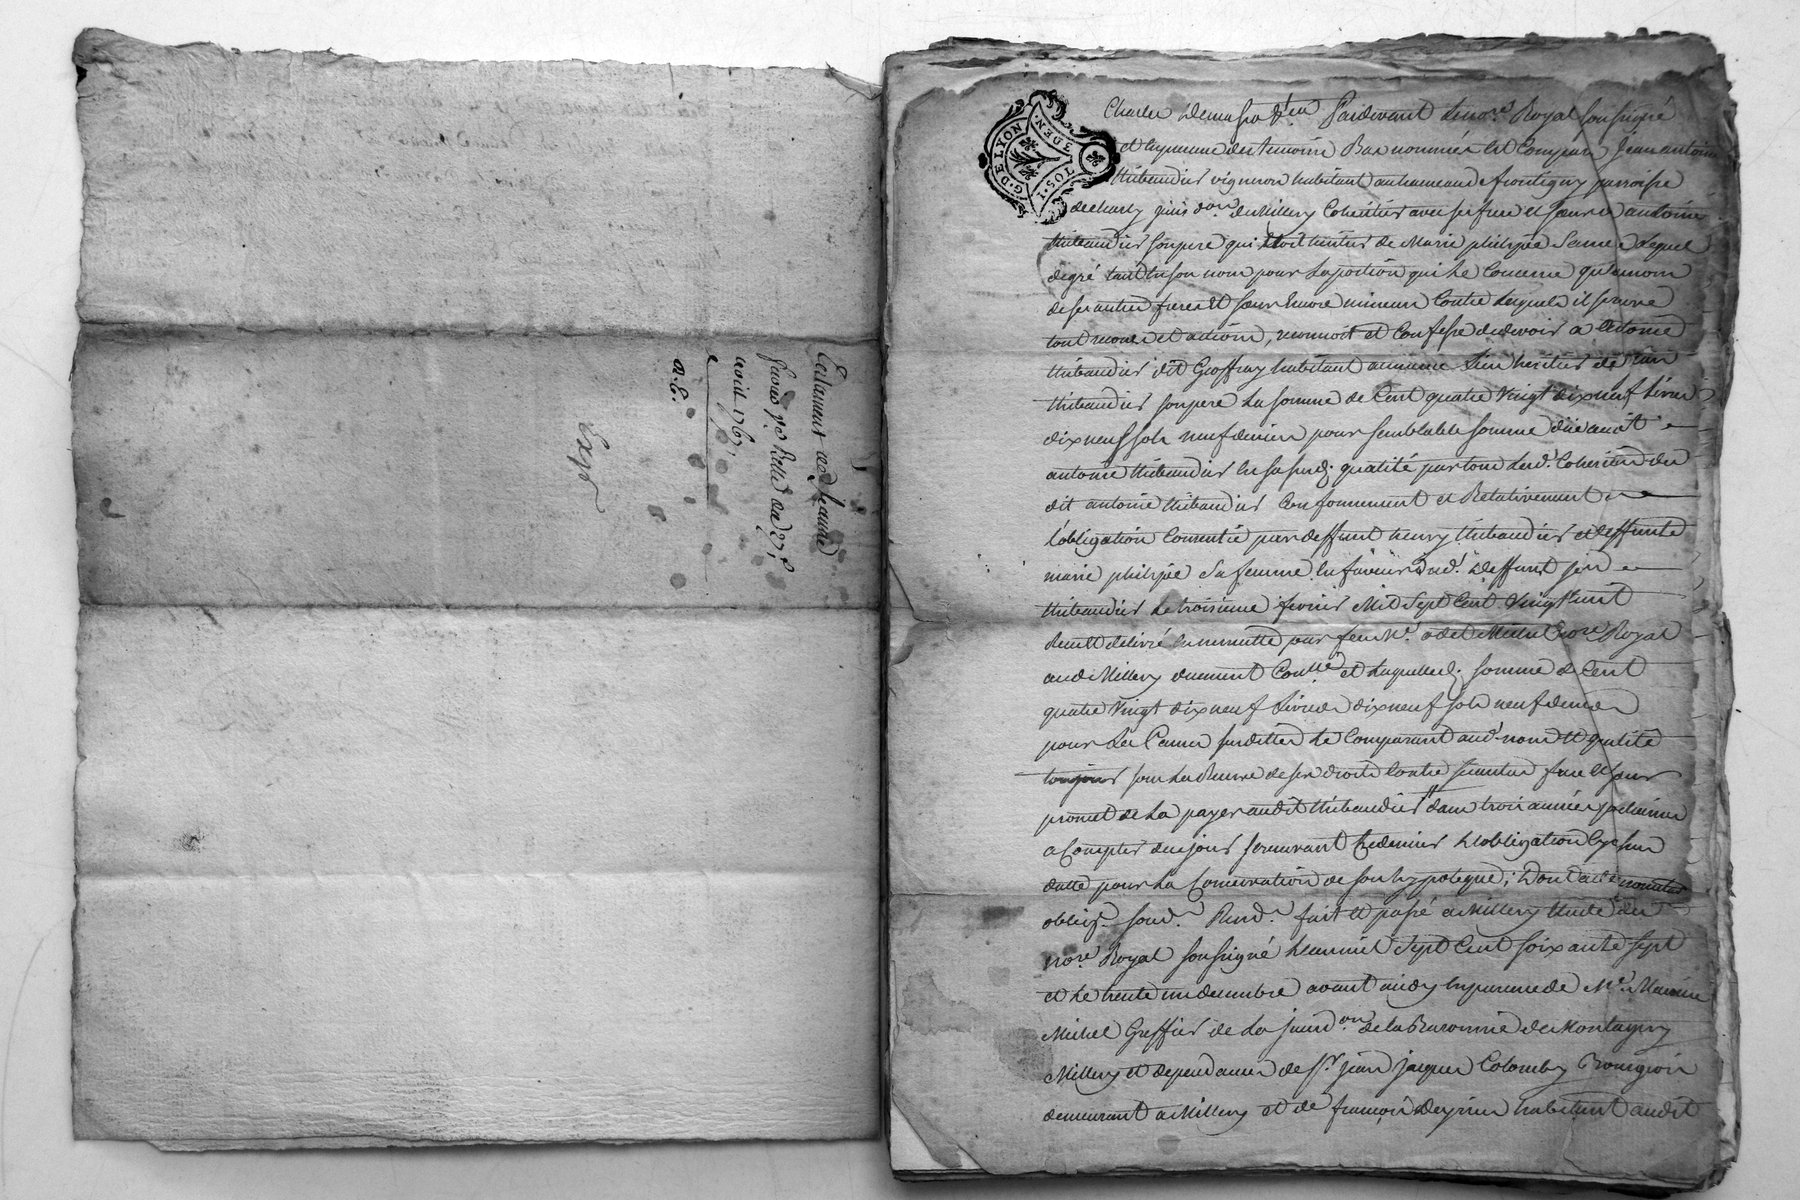 Testament de Jeanne
avril 1767
Expé
G. DE LYON
1. SOL. 3 DEN.
Pardevant le no.re Royal soussigné
et en presence des temoins Bas nommés est Comparu Jean antoine
thibaudier vigneron habitant au hameau de frontigny parroisse
de charly jurisd.on de Millery Coheritier avec ses frere et soeurs d'antoine
thibaudier son pere qui etoit heritier de Marie philipée sa mere Lequel
de gré tant en son nom pour la portion qui le Concerne qu'au nom
de ses autres freres et soeurs Encore mineurs Contre lesquels il se reserve
tout recours et actions, reconnoit et Confesse de devoir a antoine
thibaudier dit Geoffray habitant au meme lieu heritier de jean
thibaudier son pere La somme de Cent quatre Vingt dix neuf Livres
dix neuf sols neuf deniers pour semblable somme düe audit
antoine thibaudier en sa susd. qualité par tous lesd. Coheritiers du
dit antoine thibaudier Conformement et Relativement a
l'obligation Consentie par deffunt henry thibaudier et deffunte
marie philipée sa femme En faveur dud. deffunt jean
thibaudier le troisieme fevrier Mil Sept Cent Vingt huit
Receu et delivré en minutte par feu M.e Michel no.re Royal
aud. Millery duement Con.llé et Laquelle d. somme de Cent
quatre Vingt dix neuf Livres dix neuf sols neuf deniers
pour Les Causes susdittes le Comparant aud. nom et qualité
toujours sous La Reserve de ses droits Contre sesautres frere et soeurs
promet de La payer audit thibaudier dans trois années prochaines
a Compter de ce jour se reservant Ce dernier l'obligation En sa
datte pour La Conservation de son hypoteque; Dont acte
oblig.n soum.n Rend.n fait et passé a Millery Etude du
no.re Royal soussigné L'an mil Sept Cent soixante sept
et le trente un decembre avant midy En presence de M.e
Michel Greffier de La jurisd.on de la Baronnie de Montagny
Millery et dependances de s.r jean jacques Colomby Bourgeois
demeurant a Millery et de françois habitant audit